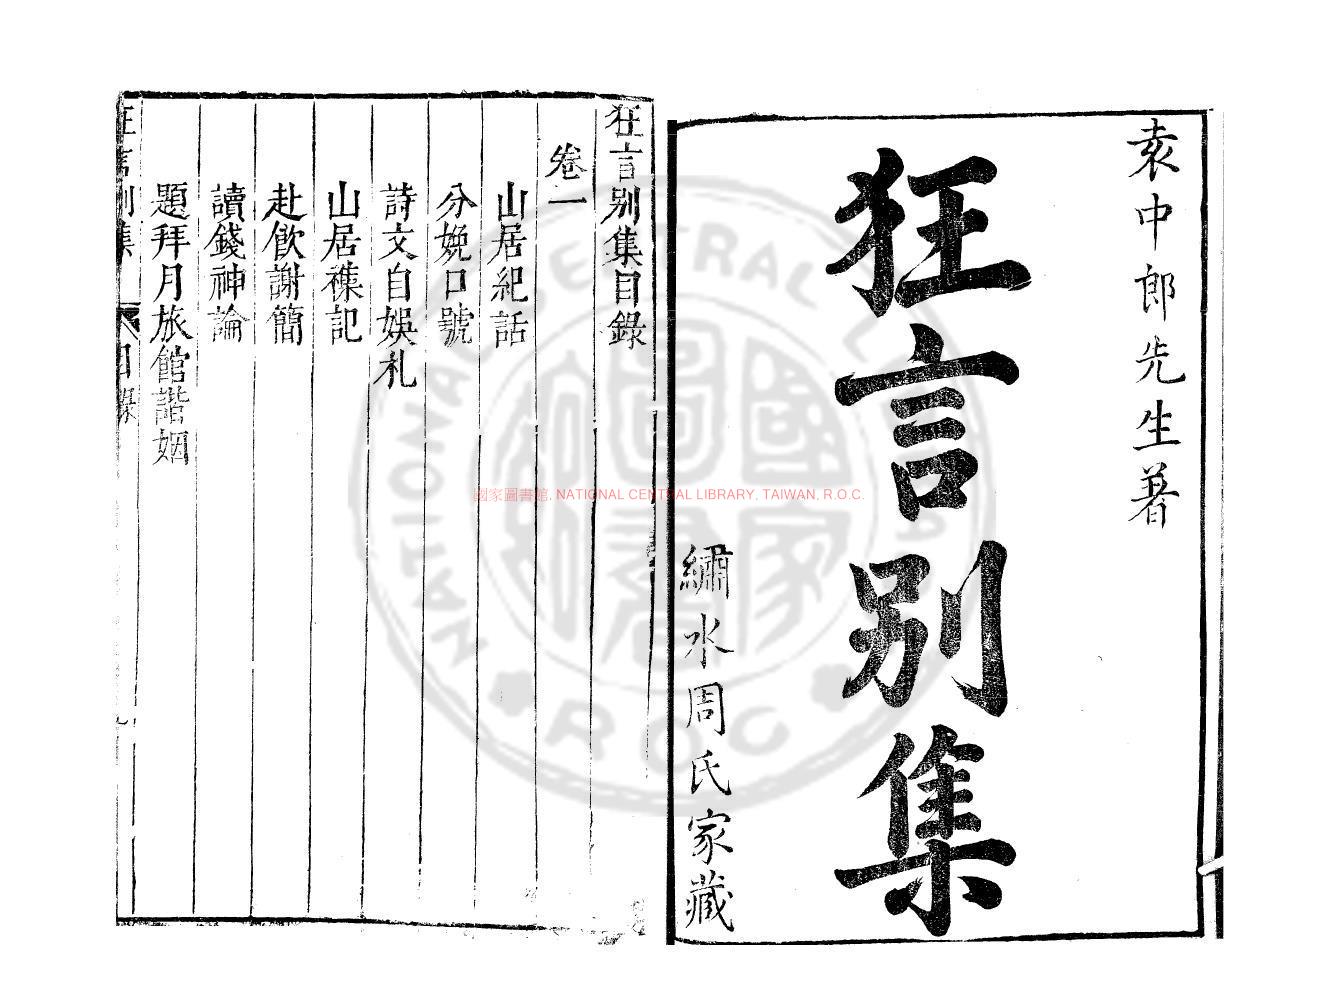 袁中郎先生著
狂言別集
繡水周氏家藏
狂言別集目錄
卷一
山居紀話
分娩口號
詩文自娛札
山居襍記
赴飲謝簡
讀錢神論
題拜月旅館諧姻
狂言別集 目錄
國家圖書館, NATIONAL CENTRAL LIBRARY, TAIWAN, R.O.C.
NATIONAL CENTRAL LIBRARY
R.O.C
國家圖書